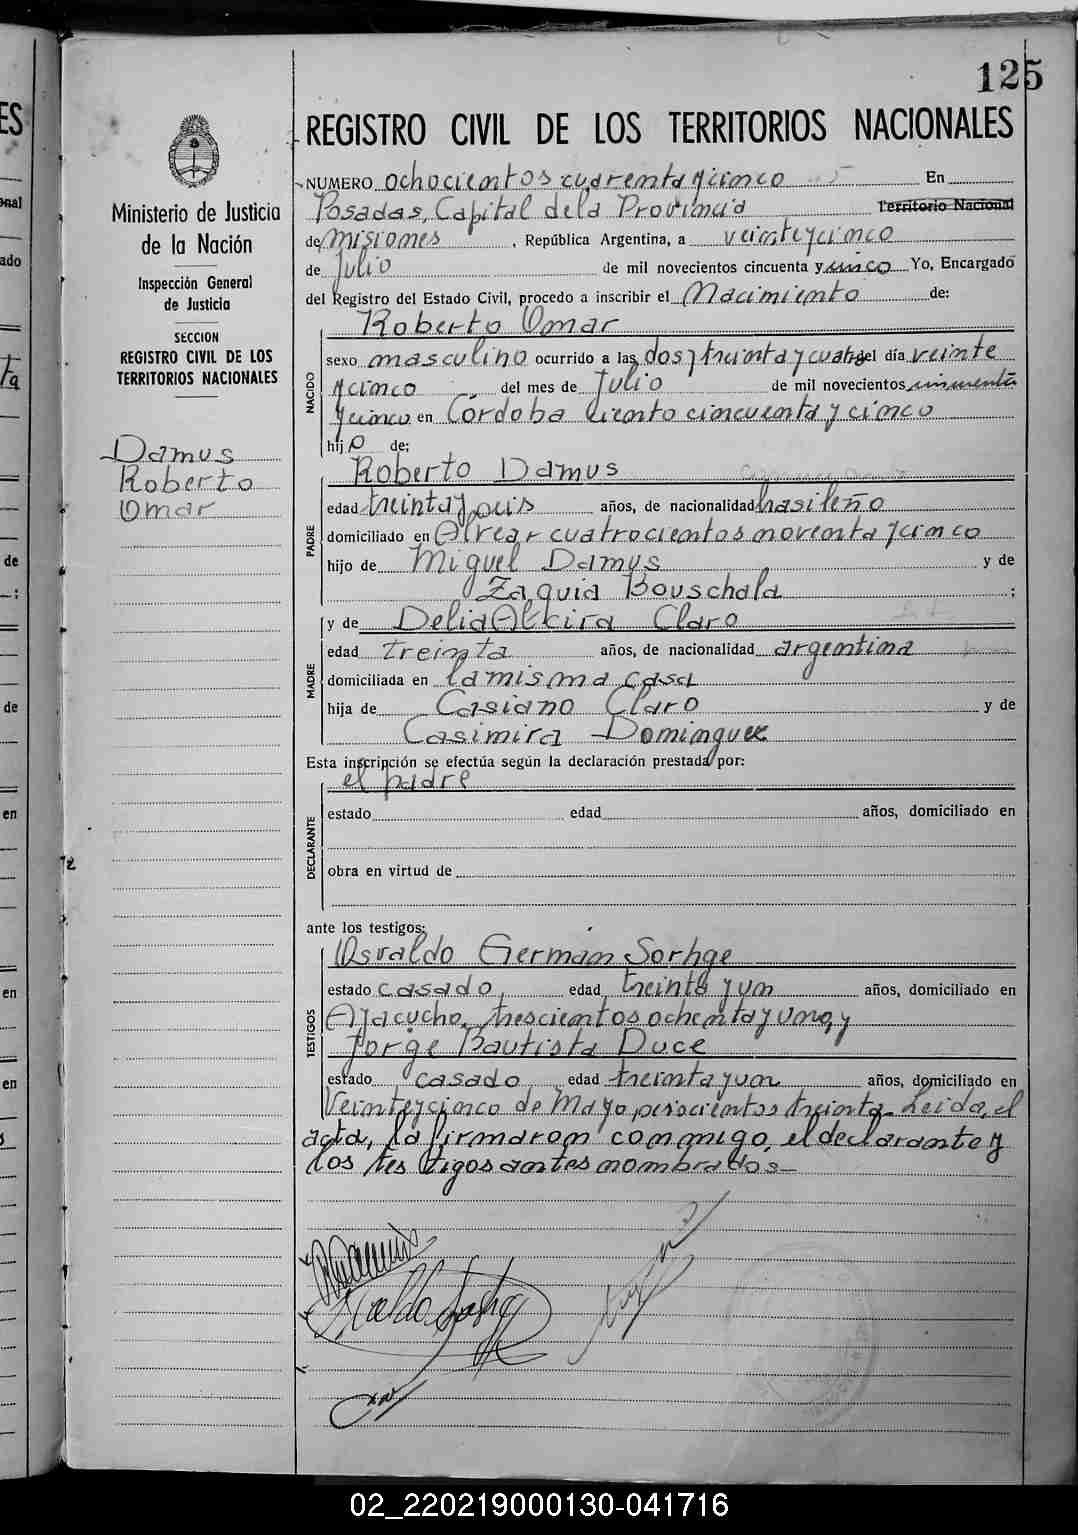 125
REGISTRO CIVIL DE LOS TERRITORIOS NACIONALES
Ministerio de Justicia
de la Nación
Inspección General
de Justicia
SECCION
REGISTRO CIVIL DE LOS
TERRITORIOS NACIONALES
Damus
Roberto
Omar
NUMERO ochocientos cuarenta y cinco En
Posadas, Capital de la Provincia Territorio Nacional
de Misiones, República Argentina, a veinte y cinco
de Julio de mil novecientos cincuenta y cinco Yo, Encargado
del Registro del Estado Civil, procedo a inscribir el Nacimiento de:
Roberto Omar
NACIDO
sexo masculino ocurrido a las dos y treinta y cuatro del día veinte
y cinco del mes de Julio de mil novecientos cincuenta
y cinco en Córdoba ciento cincuenta y cinco
hijo de:
Roberto Damus
PADRE
edad treinta y seis años, de nacionalidad brasileño
domiciliado en Alvear cuatrocientos noventa y cinco
hijo de Miguel Damus y de
Zaquia Bouschala ;
y de Delia Alcira Claro
MADRE
edad treinta años, de nacionalidad argentina
domiciliada en la misma casa
hija de Casiano Claro y de
Casimira Dominguez
Esta inscripción se efectúa según la declaración prestada por:
el padre
DECLARANTE
estado edad años, domiciliado en
obra en virtud de
ante los testigos:
Osvaldo Germán Sorhge
TESTIGOS
estado casado edad treinta y un años, domiciliado en
Ayacucho, trescientos ochenta y uno, y
Jorge Bautista Duce
estado casado edad treinta y un años, domiciliado en
Veinte y cinco de Mayo, seiscientos treinta. Leída, el
acta, la firmaron conmigo, el declarante y
los testigos antes nombrados.
02_220219000130-041716